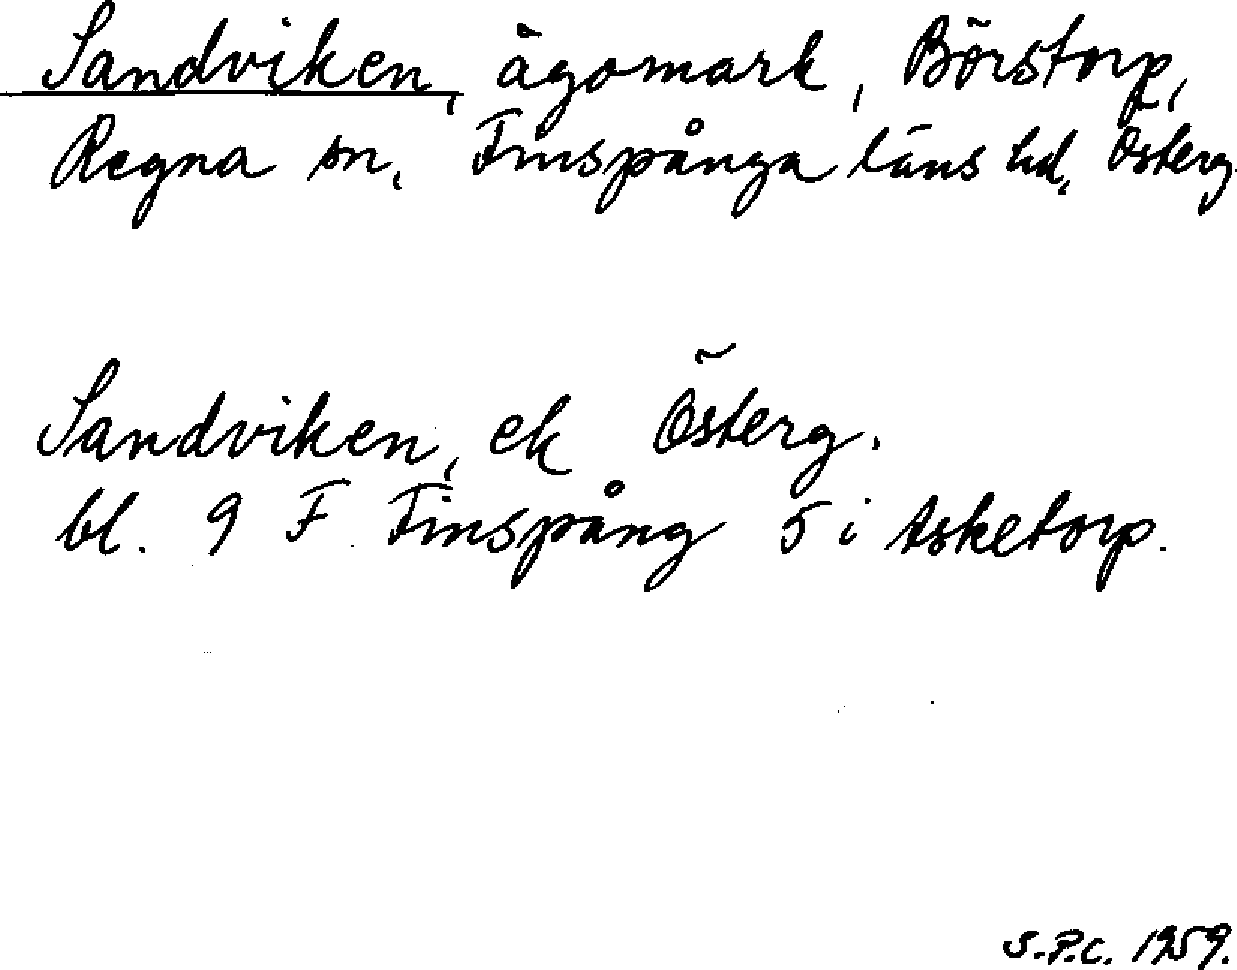 Sandviken, ägomark, Börstorp,
Regna sn, Finspånga läns hd, Österg.
Sandviken, ek Österg.
bl. 9 F Finspång 5 i Asketorp.
S.P.C. 1959.